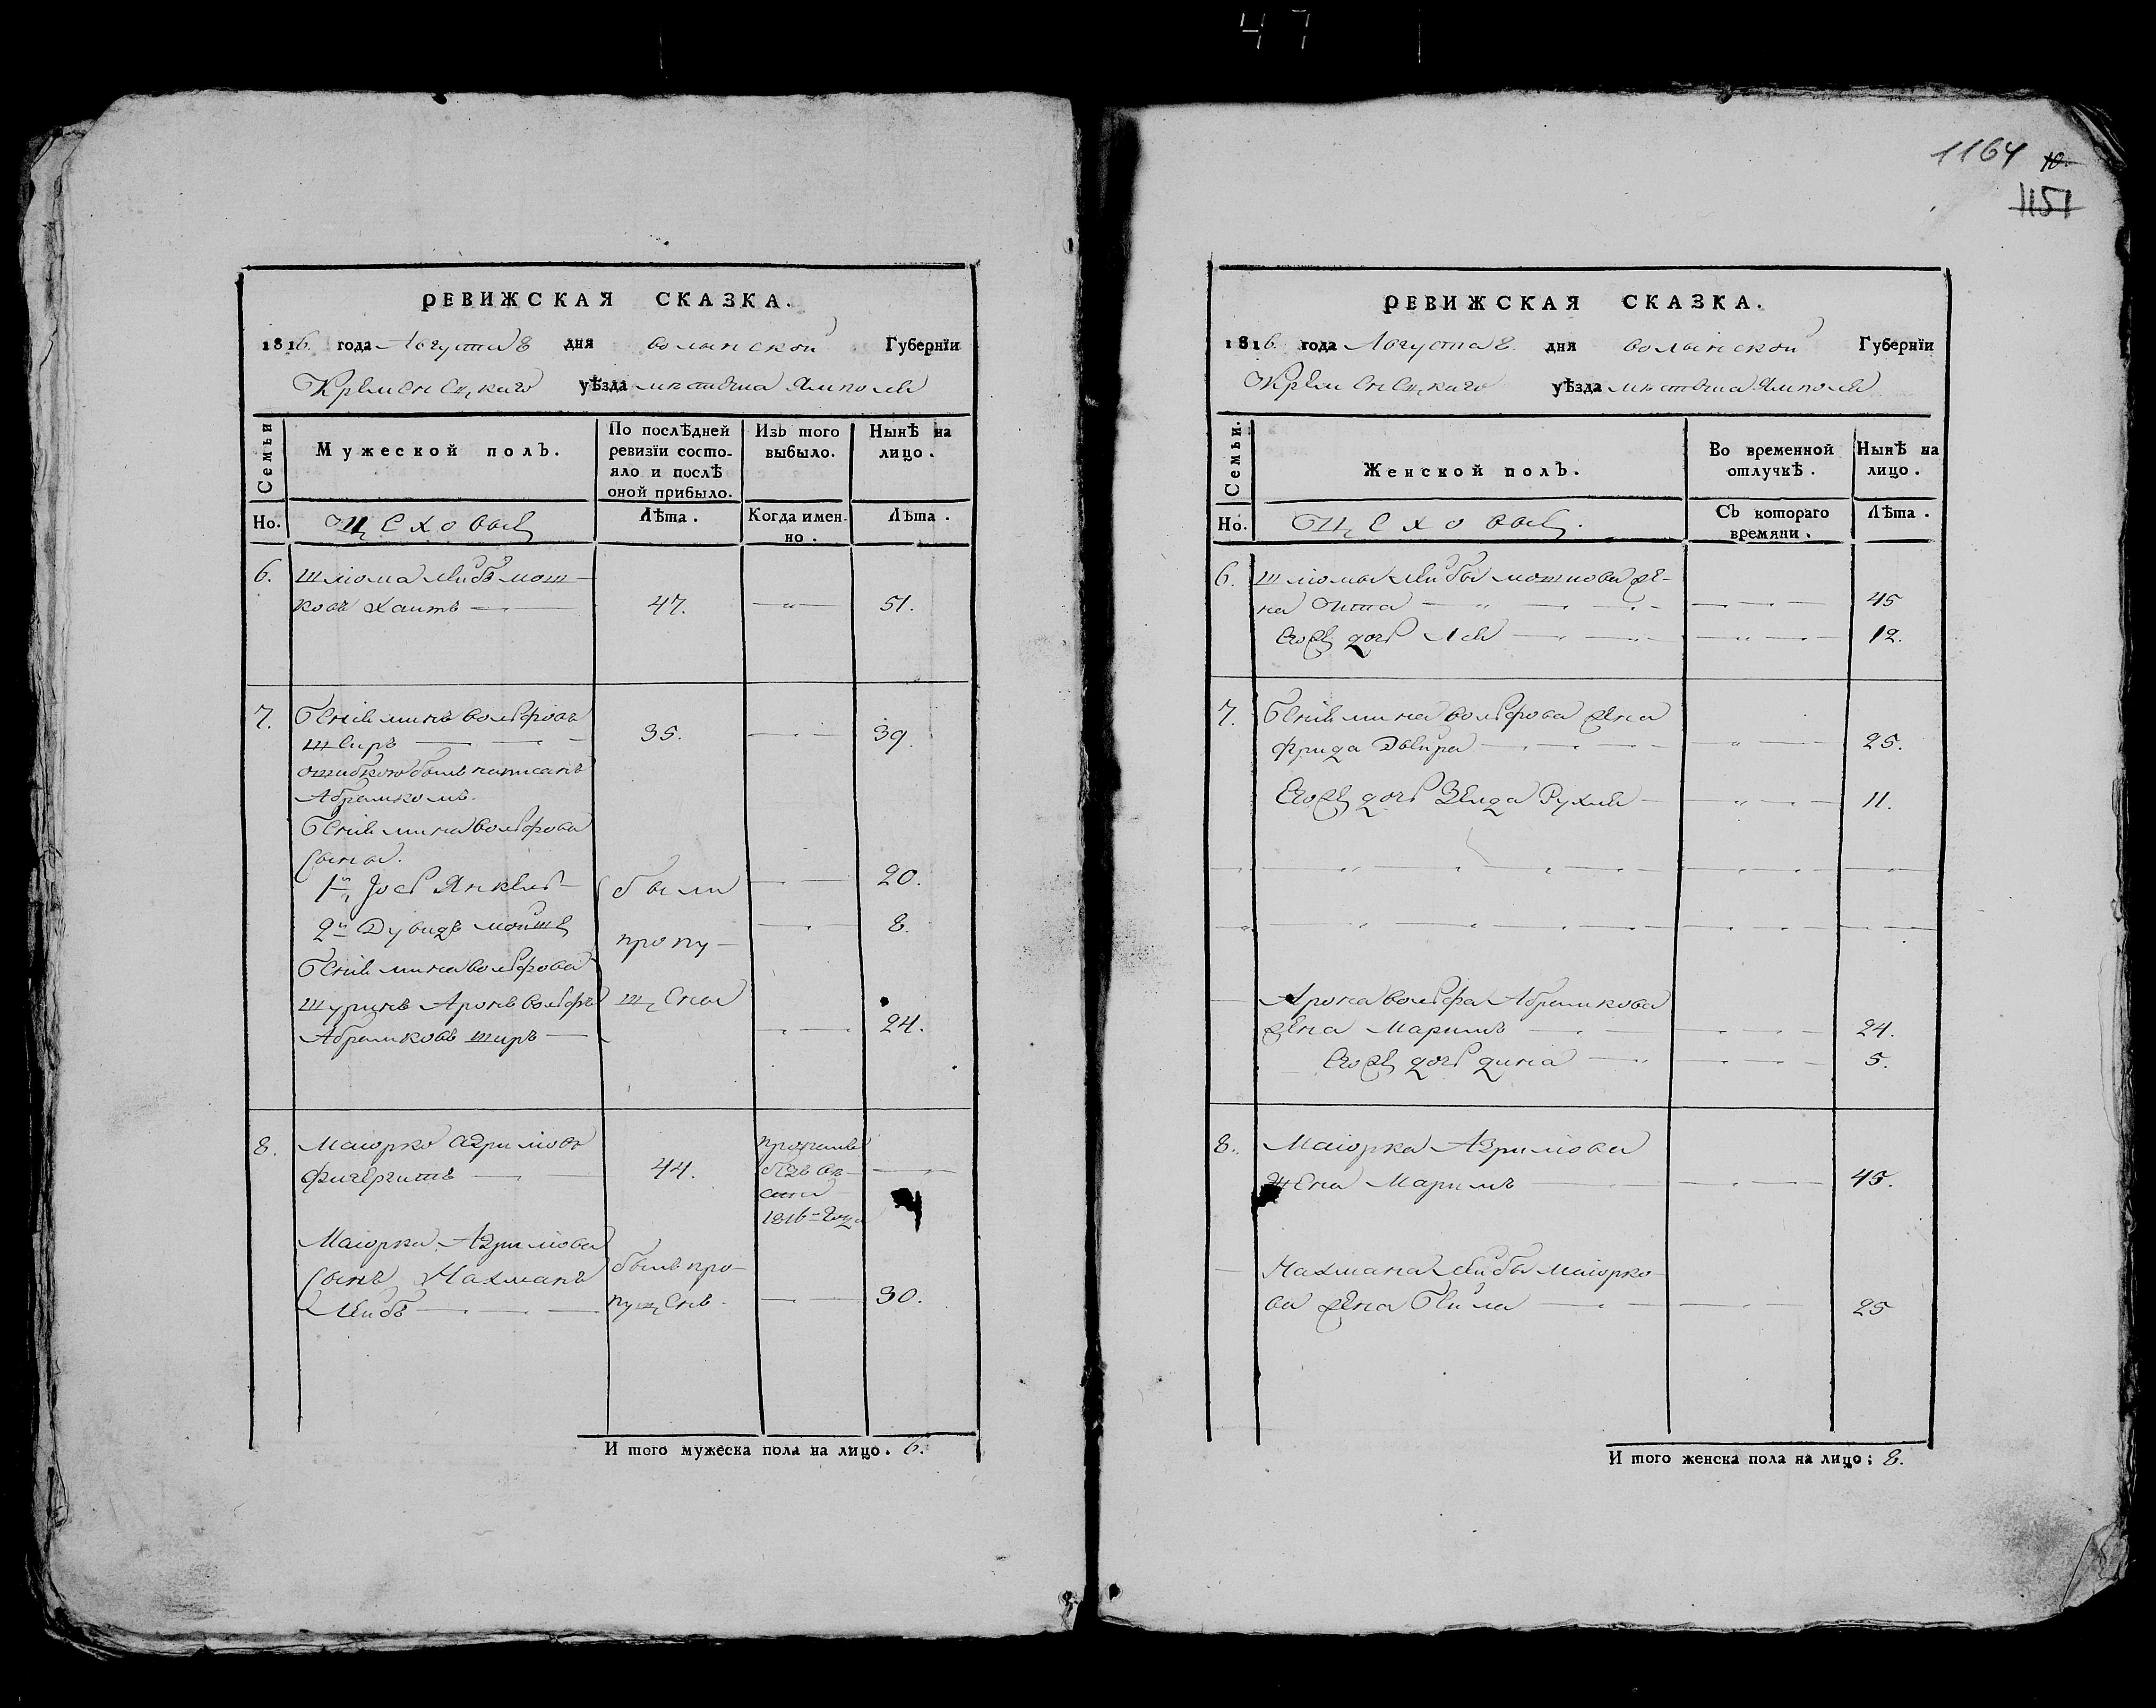 47
РЕВИЖСКАЯ СКАЗКА.
1816. года Августа 8 дня Волынской Губернїи
Кременецкаго уѣзда местечка Ямполя
Семьи
Мужеской полъ.
По послѣдней ревизїи состо-яло и послѣ оной прибыло.
Изъ того выбыло.
Нынѣ на лицо.
Но.
Цеховые
Лѣта.
Когда имен-но.
Лѣта.
6. Шлома Лейбъ Мош-
ковъ Хаитъ 47. 51.
7. Бениминъ Вольфовъ
Шеиръ 35. 39.
ошибкою былъ написанъ
Абрамкомъ.
Бенимина Вольфова
сыны.
1й Іось Янкель были 20.
2й Дувидъ Мойше пропу- 8.
Бенимина Вольфова
шуринъ Аронъ Вольфъ щены
Абрамковъ Ширъ 24.
8. Маіорко Азриліовъ
44.
безъ вѣ-
сти
1816 года
Маіорка Азриліова
сынъ Нахманъ былъ про-
Лейбъ пущенъ. 30.
И того мужеска пола на лицо. 6.
1164 10.
1151
РЕВИЖСКАЯ СКАЗКА.
1816. года Августа 8. дня Волынской Губернїи
Кременецкаго уѣзда местечка Ямполя
Семьи.
Женской полъ.
Во временной отлучкѣ.
Нынѣ на лицо.
Но.
Цеховые.
Съ котораго времяни.
Лѣта.
6. Шломы Лейбы Мошкова же-
на Итта 45
Его же дочь Лея 12.
7. Бенимина Вольфова жена
Фрида Двейра 25.
Его же дочь Зелда Рухля 11.
Арона Вольфа Абрамкова
жена Маримъ 24.
Его же дочь Дина 5.
8. Маіорка Азриліова
жена Маримъ 45.
Нахмана Лейбы Маіорко-
ва жена Бейла 25
И того женска пола на лицо; 8.